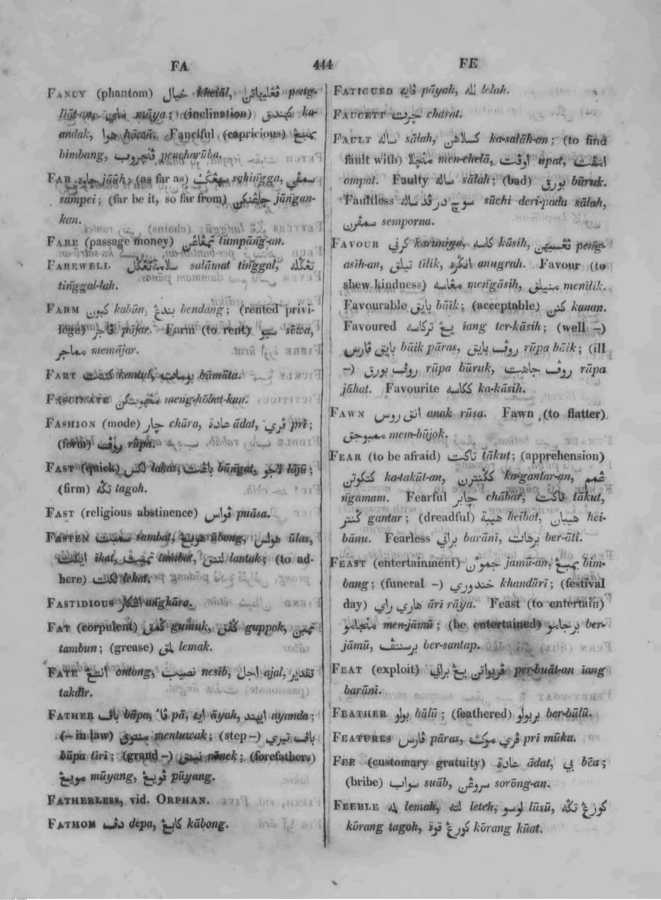 FA 444 FE
FANCY (phantom) خيال kheiāl,
māya; (inclination) ka-
andak, هوا Fanciful (capricious)
bimbang,
FAR jāūh, (as far as) sahinggga, سمڤي
sampei; (far be it, so far from) jāngan-
kan.
FARE (passage money) tumpāng-an.
FAREWELL salāmat tinggal,
tinggal-lah.
FARM كبون kabūn, بندڠ bendang; (rented privi-
lege) ڤاجر pājar. Farm (to rent) sēwa,
مماجر memājar.
FART kentut, būmūta.
FASCINATE meng-hōbat-kan.
FASHION (mode) چار chāra, عادة ādat, ڤري prī;
(form) روڤ rūpa.
FAST (quick) لكس lakas, باڠت bāngat, لاجو lājū;
(firm) تݢه tagoh.
FAST (religious abstinence) ڤواس puāsa.
FASTEN sambat, ūbong, هولس ūlas,
ايكت ikat, tambat, lantak; (to ad-
here) لكت lekat.
FASTIDIOUS angkāra.
FAT (corpulent) ݢمق gumuk, guppok,
tambun; (grease) لمق lemak.
FATE ontong, نصيب nesīb, اجل ajal, تقدير
takdīr.
FATHER باڤ bāpa, ڤا pā, ايه āyah, ayanda;
(– in law) منتوق mentuwak; (step –) باڤ تيري
bāpa tīrī; (grand –) nēnek; (forefathers)
مويڠ mūyang, ڤويڠ pūyang.
FATHERLESS, vid. ORPHAN.
FATHOM دڤ depa, kābong.
FATIGUED ڤايه pāyah, لله lelah.
FAUCETT چرت charat.
FAULT ساله sālah, كسلاهن ka-salāh-an; (to find
fault with) منچلا men-chelā, اوڤت ūpat, امڤت
ampat. Faulty ساله sālah; (bad) بورق būruk.
Faultless سوچ درڤد ساله sūchi deri-pada sālah,
سمڤرن semporna.
FAVOUR كرني karunīya, كاسه kāsih, ڤڠسيهن peng-
asīh-an, تيلق tīlik, انݢره anugrah. Favour (to
shew kindness) مڠاسه mengāsih, منيلق menīlik.
Favourable بايق bāik; (acceptable) كنن kunan.
Favoured يڠ تركاسه iang ter-kāsih; (well –)
بايق ڤارس bāik pāras, روڤ بايق rūpa bāik; (ill
–) روڤ بورق rūpa būruk, روڤ جاهت rūpa
jāhat. Favourite ككاسه ka-kāsih.
FAWN انق روس anak rūsa. Fawn (to flatter)
ممبوجق mem-būjok.
FEAR (to be afraid) تاكت tākut; (apprehension)
كتكوتن ka-takūt-an, ka-gantar-an, غمم
ngamam. Fearful چابر chābar, تاكت tākut,
ݢنتر gantar; (dreadful) هيبة heibat, هيبان hei-
bānu. Fearless براني barānī, ber-ātī.
FEAST (entertainment) جموان jamū-an, بمبڠ bim-
bang; (funeral –) خندوري khandūrī; (festival
day) هاري راي āri rāya. Feast (to entertain)
منجامو men-jāmū; (be entertained) برجامو ber-
jāmū, برسنتڤ ber-santap.
FEAT (exploit) per-buāt-an iang
barāni.
FEATHER بولو būlū; (feathered) بربولو ber-būlū.
FEATURES ڤارس pāras, ڤري موك pri mūka.
FEE (customary gratuity) عادة ādat, بي bēa;
(bribe) سواب suāb, سروڠن sorōng-an.
FEEBLE lemah, لته leteh, لوسو lūsū, كورڠ تݢه
kōrang tagoh, كورڠ قوة kōrang kūat.